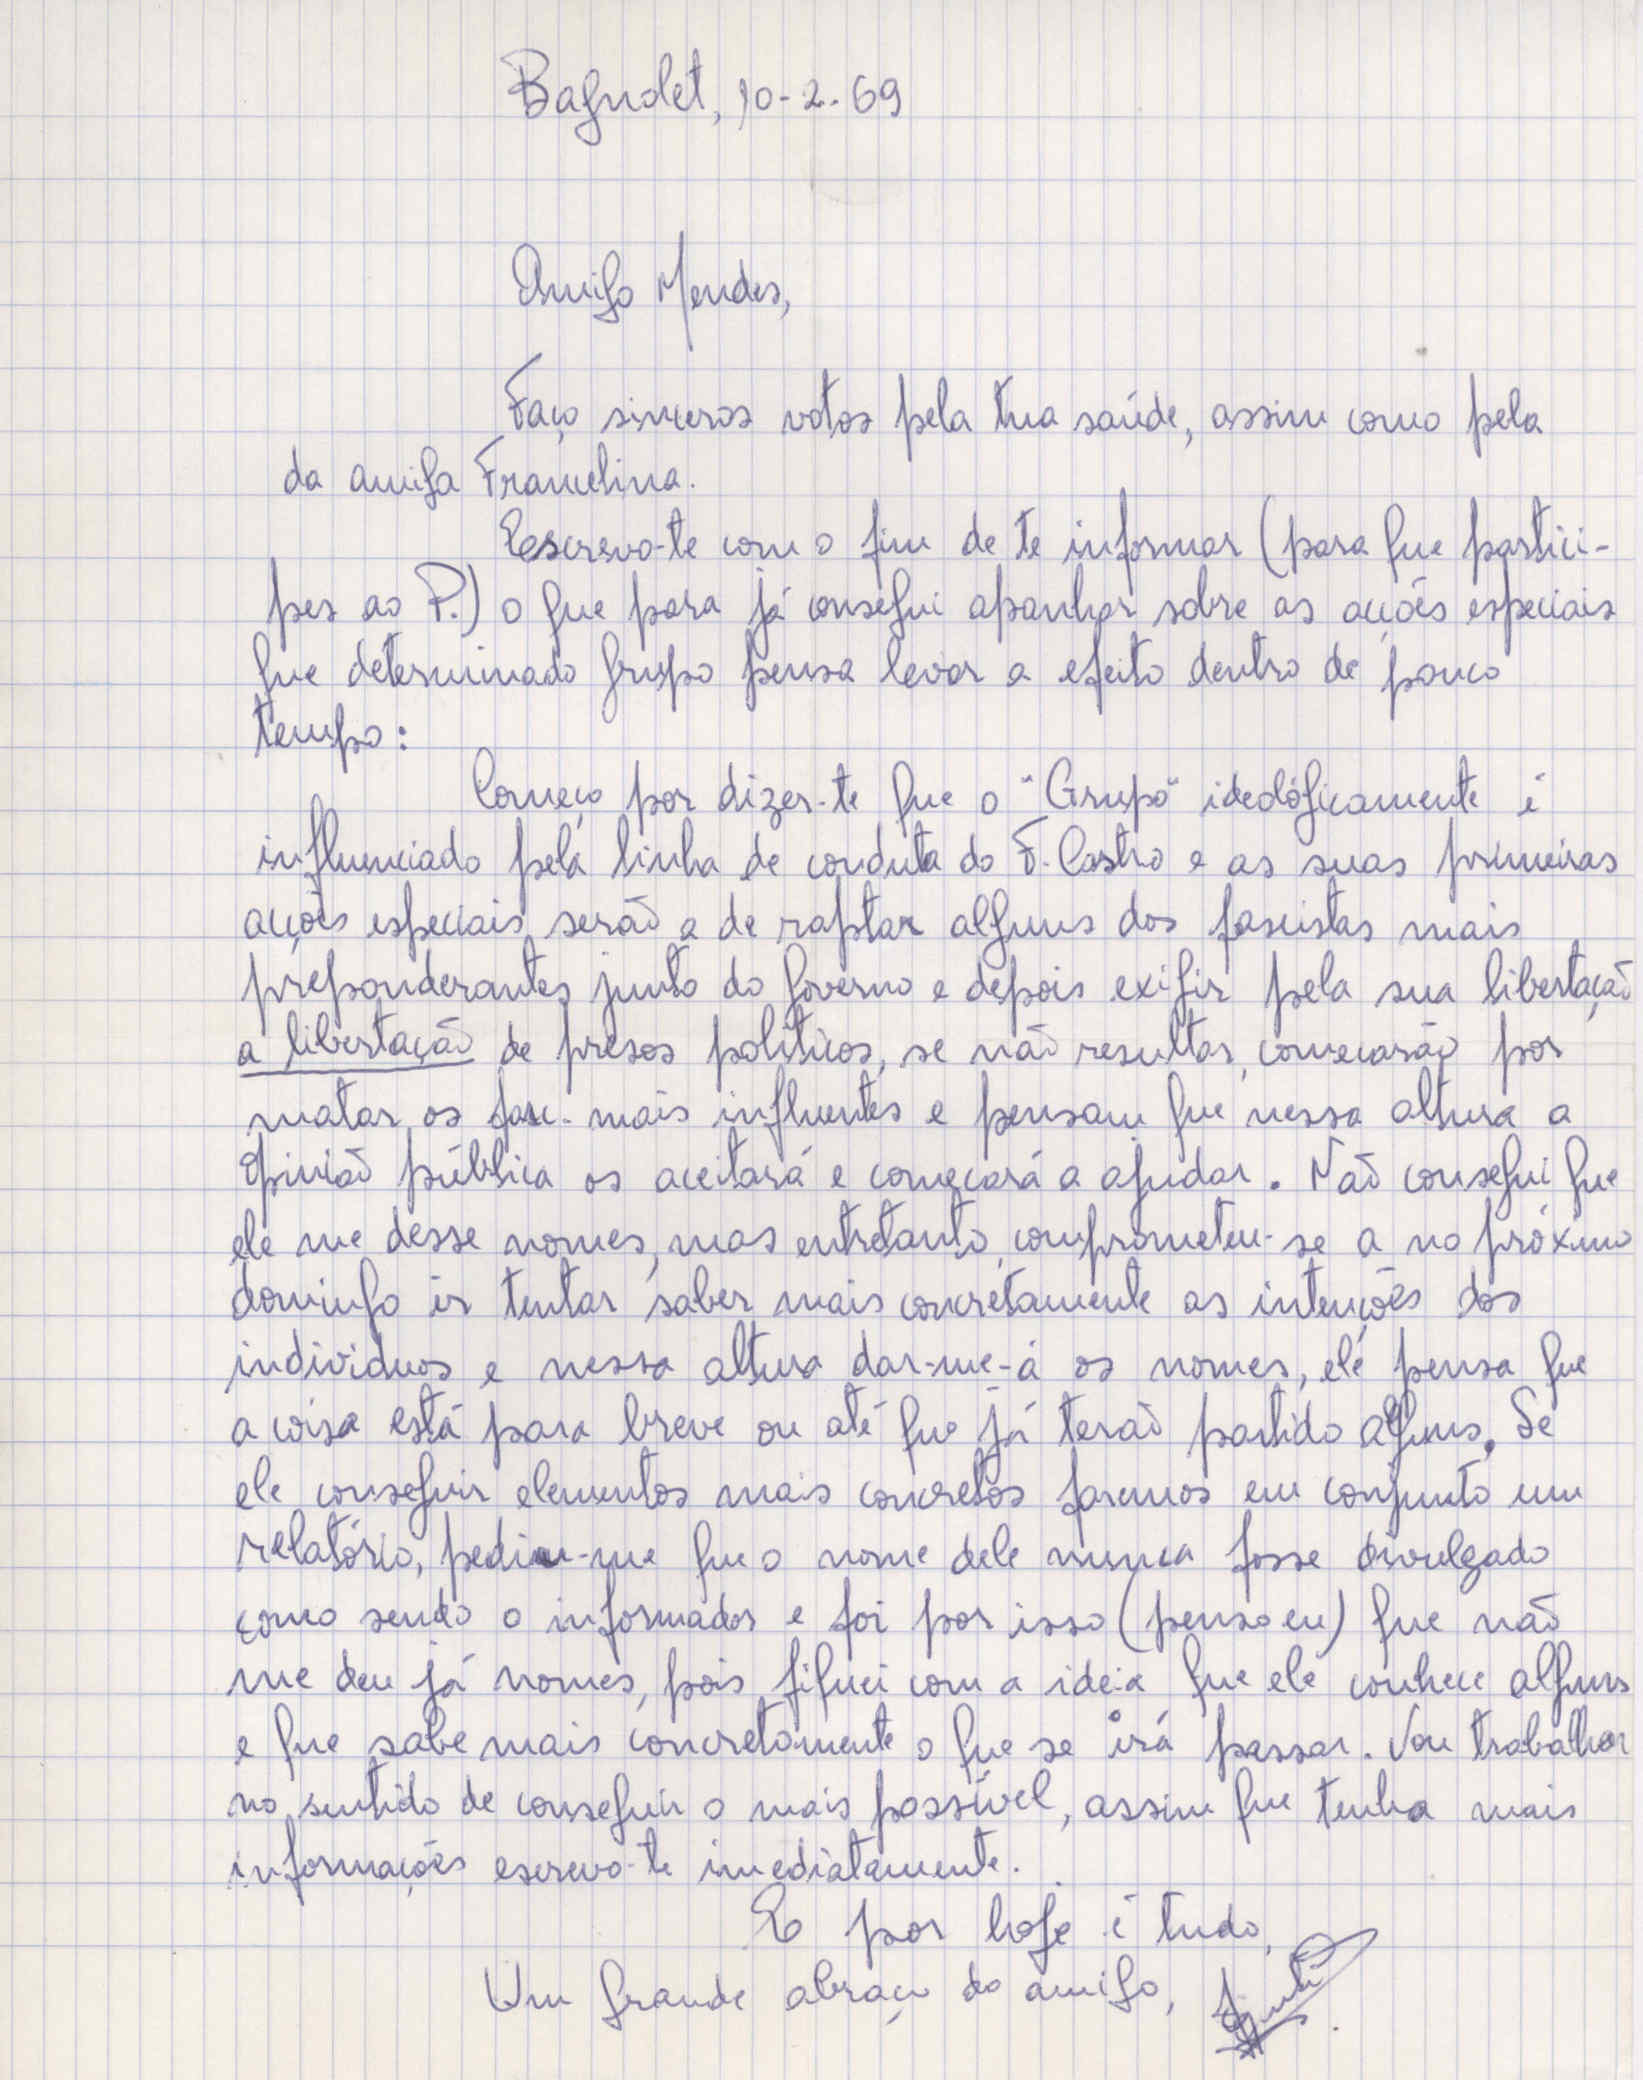 Bagnolet, 10-2-69
Amigo Mendes,
Faço sinceros votos pela tua saúde, assim como pela
da amiga Francelina.
Escrevo-te com o fim de te informar (para que partici-
pes ao P.) o que para já consegui apanhar sobre as acções especiais
que determinado grupo pensa levar a efeito dentro de pouco
tempo:
Começo por dizer-te que o "Grupo" ideológicamente é
influenciado pela linha de conduta do F. Castro e as suas primeiras
acções especiais serão a de raptar alguns dos fascistas mais
preponderantes junto do governo e depois exigir pela sua libertação
a libertação de presos políticos, se não resultar, começarão por
matar os fasc. mais influentes e pensam que nessa altura a
opinião pública os aceitará e começará a ajudar. Não consegui que
ele me desse nomes, mas entretanto, comprometeu-se a no próximo
domingo ir tentar saber mais concretamente as intenções dos
individuos e nessa altura dar-me-á os nomes, ele pensa que
a coisa está para breve ou até que já terão partido alguns. Se
ele conseguir elementos mais concretos faremos em conjunto um
relatório, pediu-me que o nome dele nunca fosse divulgado
como sendo o informador e foi por isso (penso eu) que não
me deu já nomes, pois fiquei com a ideia que ele conhece alguns
e que sabe mais concretamente o que se irá passar. Vou trabalhar
no sentido de conseguir o mais possível, assim que tenha mais
informações escrevo-te imediatamente.
E por hoje é tudo,
Um grande abraço do amigo,